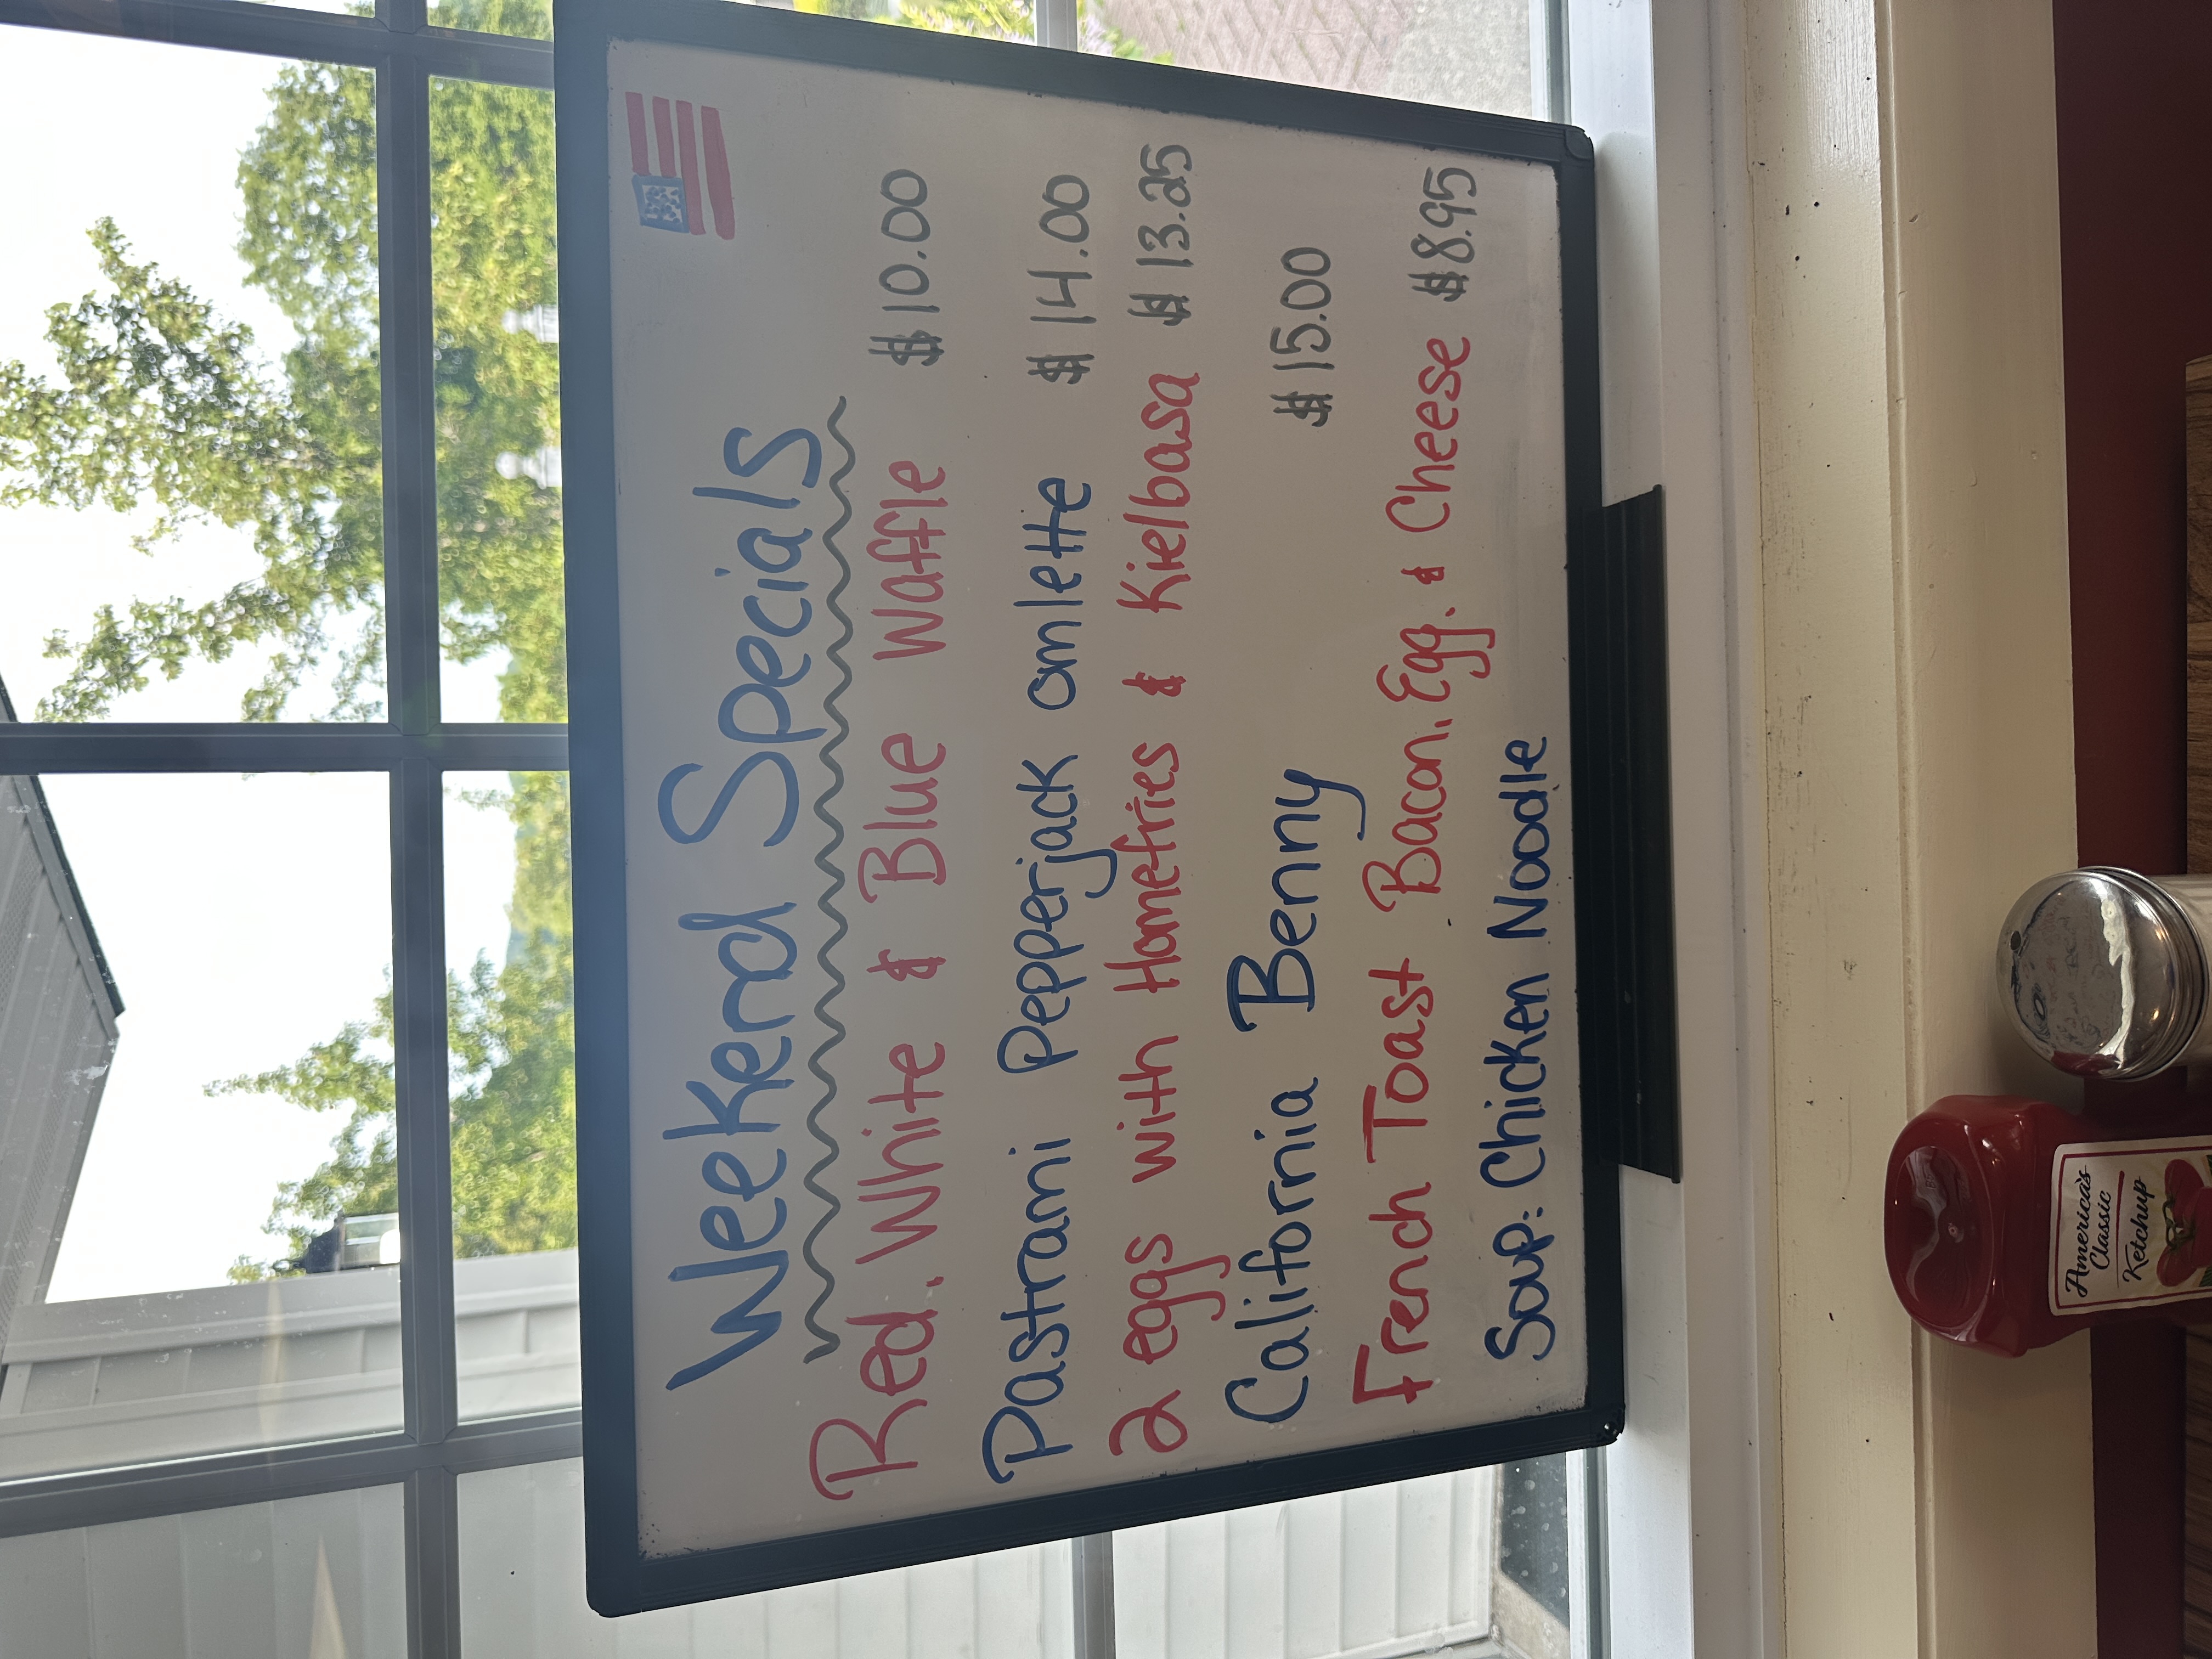 Weekend Specials
Red, White & Blue Waffle $10.00
Pastrami Pepperjack omlette $14.00
2 eggs with Homefries & Kielbasa $13.25
California Benny $15.00
French Toast Bacon, Egg, & Cheese $8.95
Soup: Chicken Noodle
America's
Classic
Ketchup